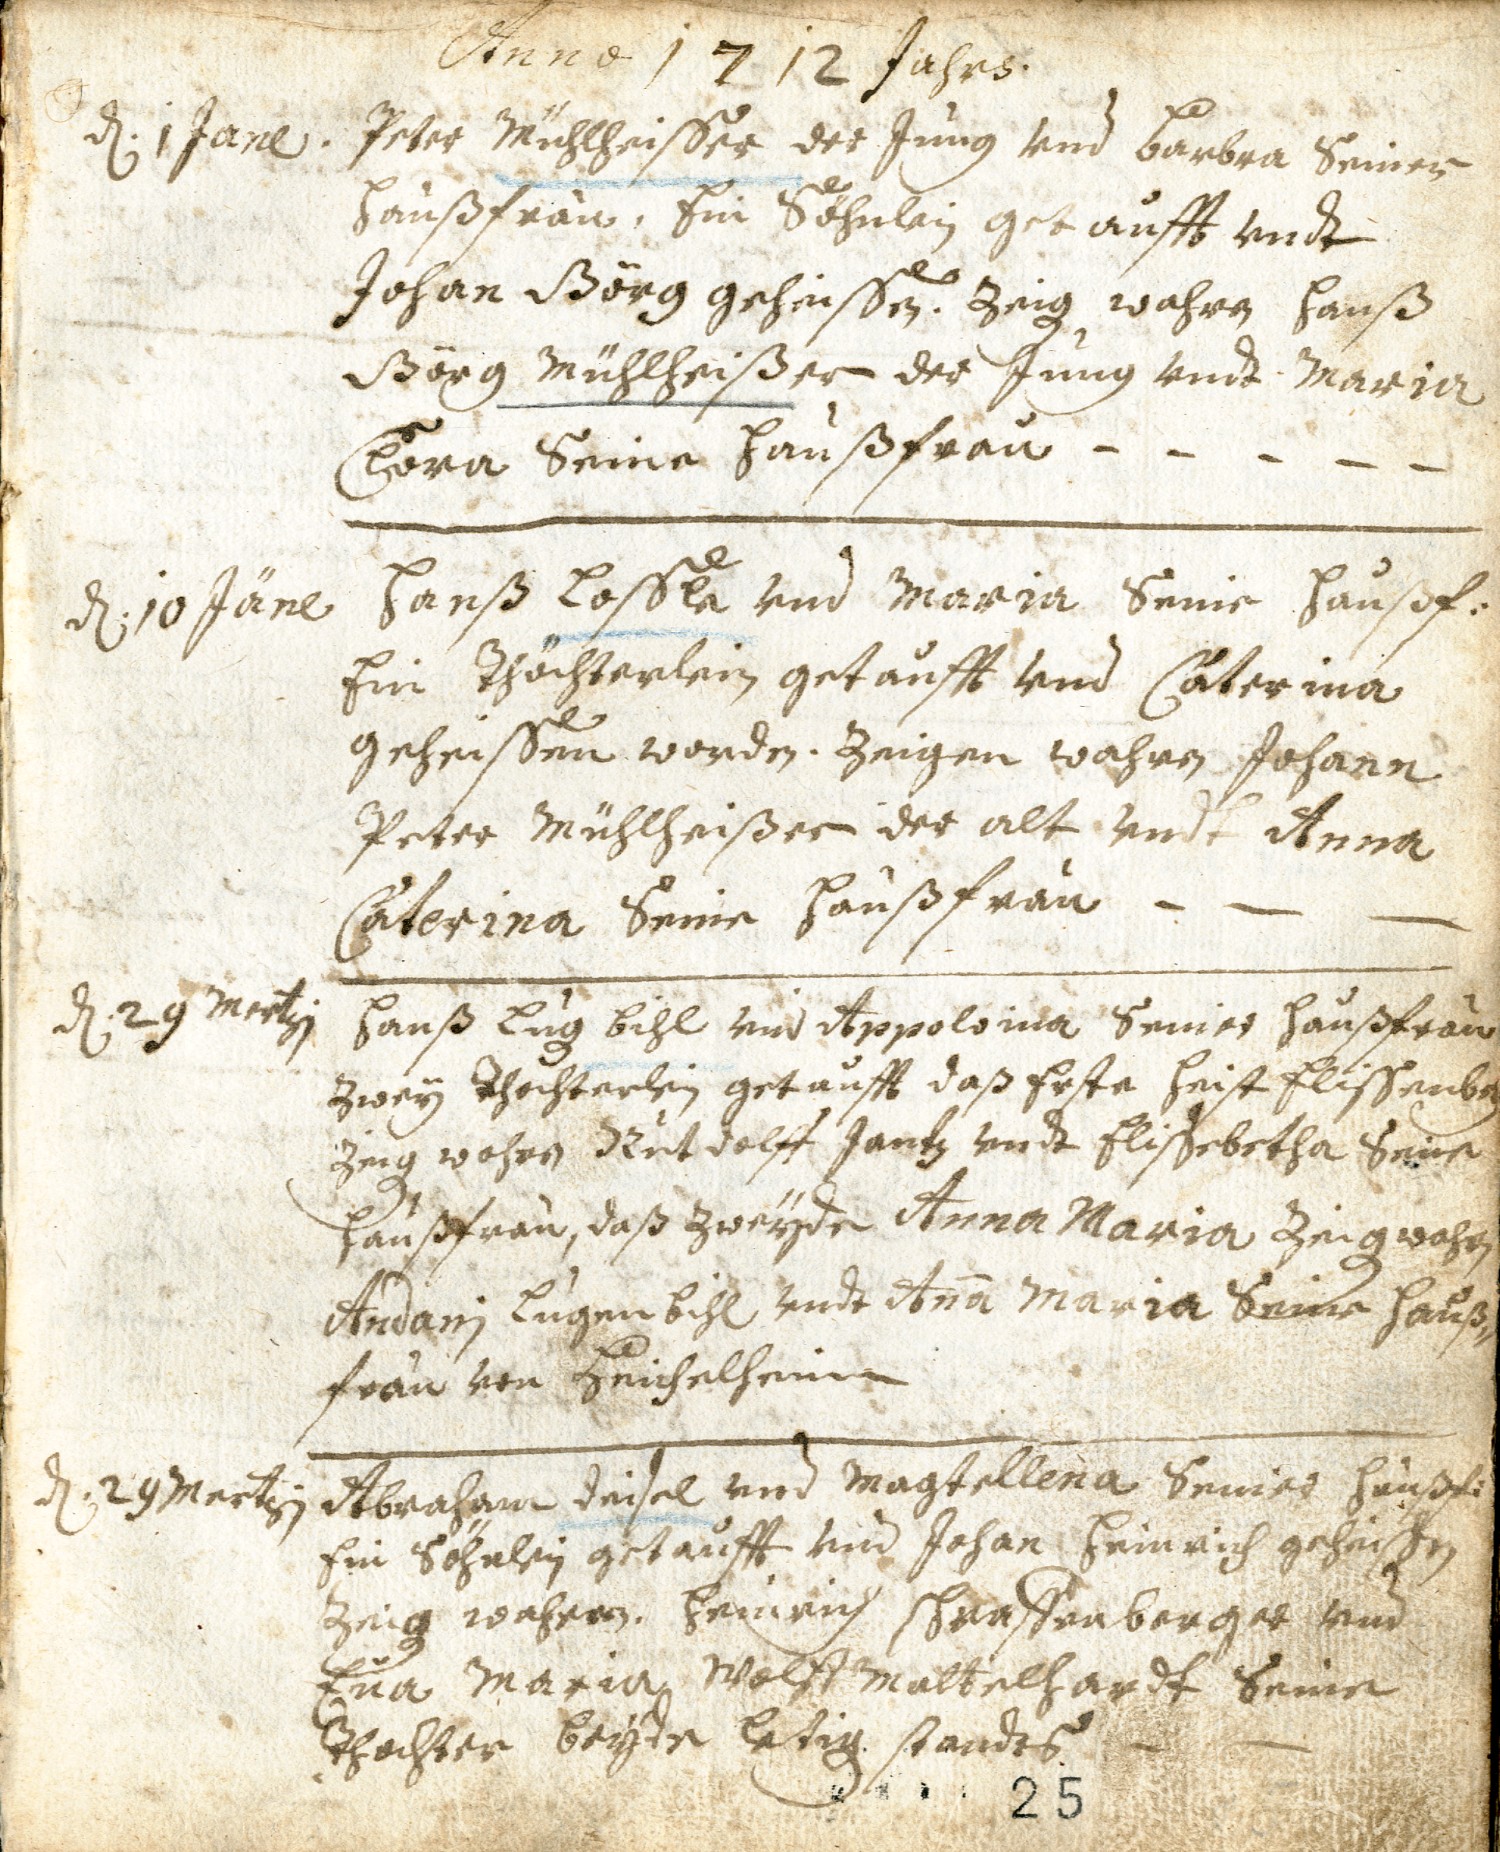 Anno 1712 Jahrs.
d. 1 Jane. Peter Mühlheisser der Jung vnd barbra Seiner
haußfrau, Ein Söhnlein getaufft vndt
Johan Görg geheissen. Zeig wahren Hanß
Görg Mühlheißer der Jung vndt Maria
Clora Seine haußfrau - - - - -
d. 10 Jäne Hanß Lossle vnd Maria Seine haußf:
Ein Thöchterlein getaufft vnd Caterina
geheissen worden. Zeigen wahren Johann
Peter Mühlheißer der alt vndt Anna
Caterina Seine haußfrau - - -
d. 29 Mertzi Hanß Lugbihl vnd Appolonia Seiner haußfrau
Zwey Thochterlein getaufft daß Erste heist
Zeig wahren Rutdolff Jantz vndt Elissebetha Seine
haußfrau, daß Zweÿde Anna Maria Zeig wahren
Lugenbihl vndt Aña Maria Seine hauß„
frau von Heichelheim
d. 29 Mertzi Abraham deisel vnd Magtellena Seiner haußf:
Ein Söhnlein getaufft vnd Johan Heinrich geheissen
Zeig wahren. Heinrich vnd
Eua Maria, Wolff Mattelhardt Seine
Thochter beÿde letig standes. - -
25